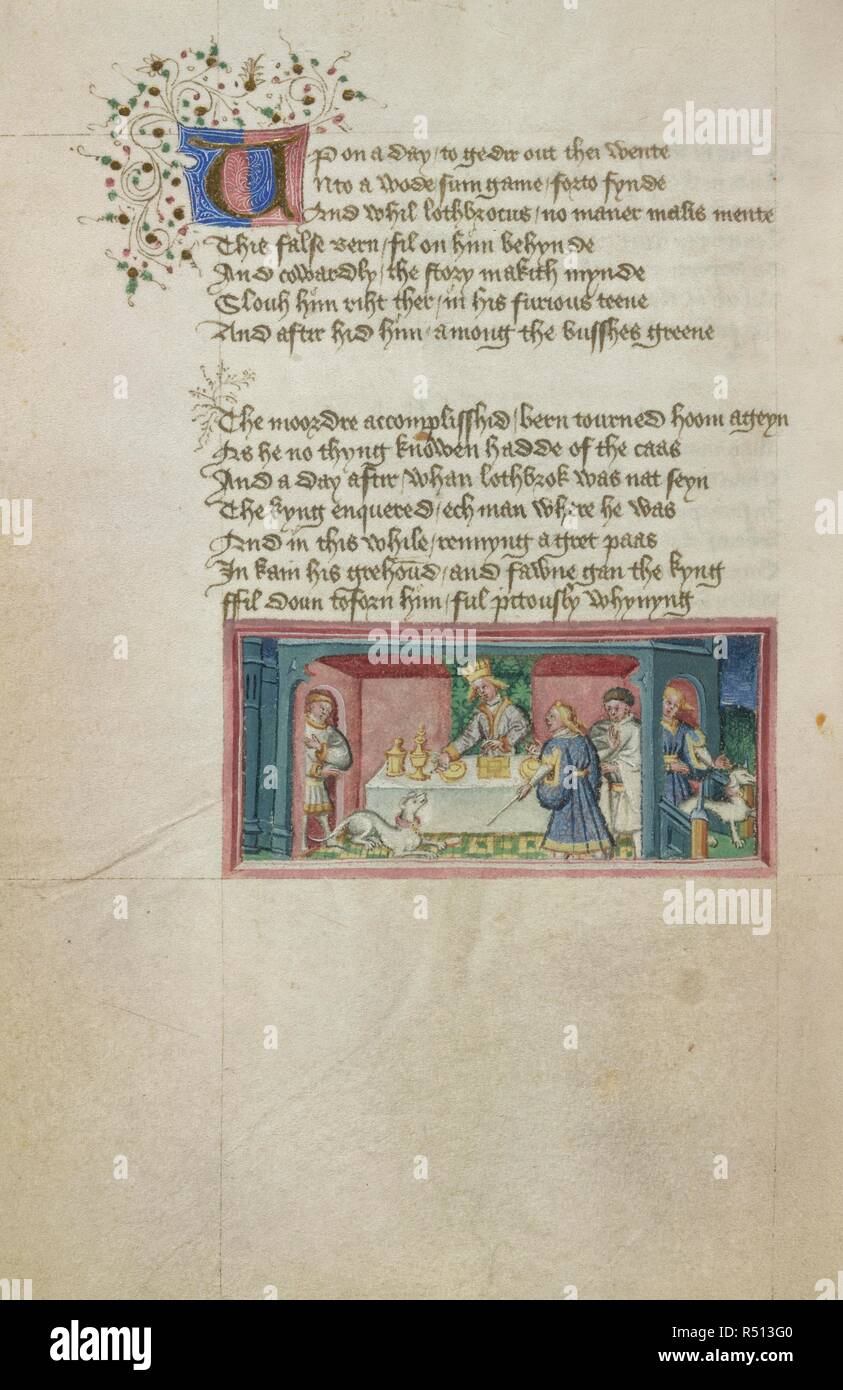 Up on a day / to gedir out thei wente
Unto a wode sum game / forto fynde
And whil lothbrocus / no maner malis mente
This false bern / fil on hym behynde
And cowardly / the story makith mynde
Slouh hym riht ther / in his furious teene
And aftir hid hym / among the busshes greene
The moordre accomplisshid / bern tourned hoom ageyn
As he no thyng knowen hadde of the caas
And a day aftir / whan lothbrok was nat seyn
The kyng enquered / ech man where he was
And in this while / rennyng a gret paas
In kam his grehoūd / and fawne gan the kyng
ffil doun toforn hym / ful pitously whynyng
a alamy
alamy
Image ID: R513G0
www.alamy.com